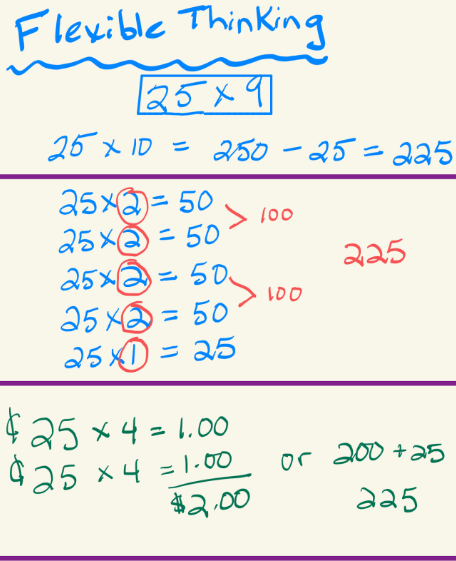 Flexible Thinking
25 × 9
25 × 10 = 250 - 25 = 225
25 × 2 = 50
25 × 2 = 50 > 100
25 × 2 = 50 225
25 × 2 = 50 > 100
25 × 1 = 25
¢25 × 4 = 1.00
¢25 × 4 = 1.00 or 200 + 25
$2.00 225